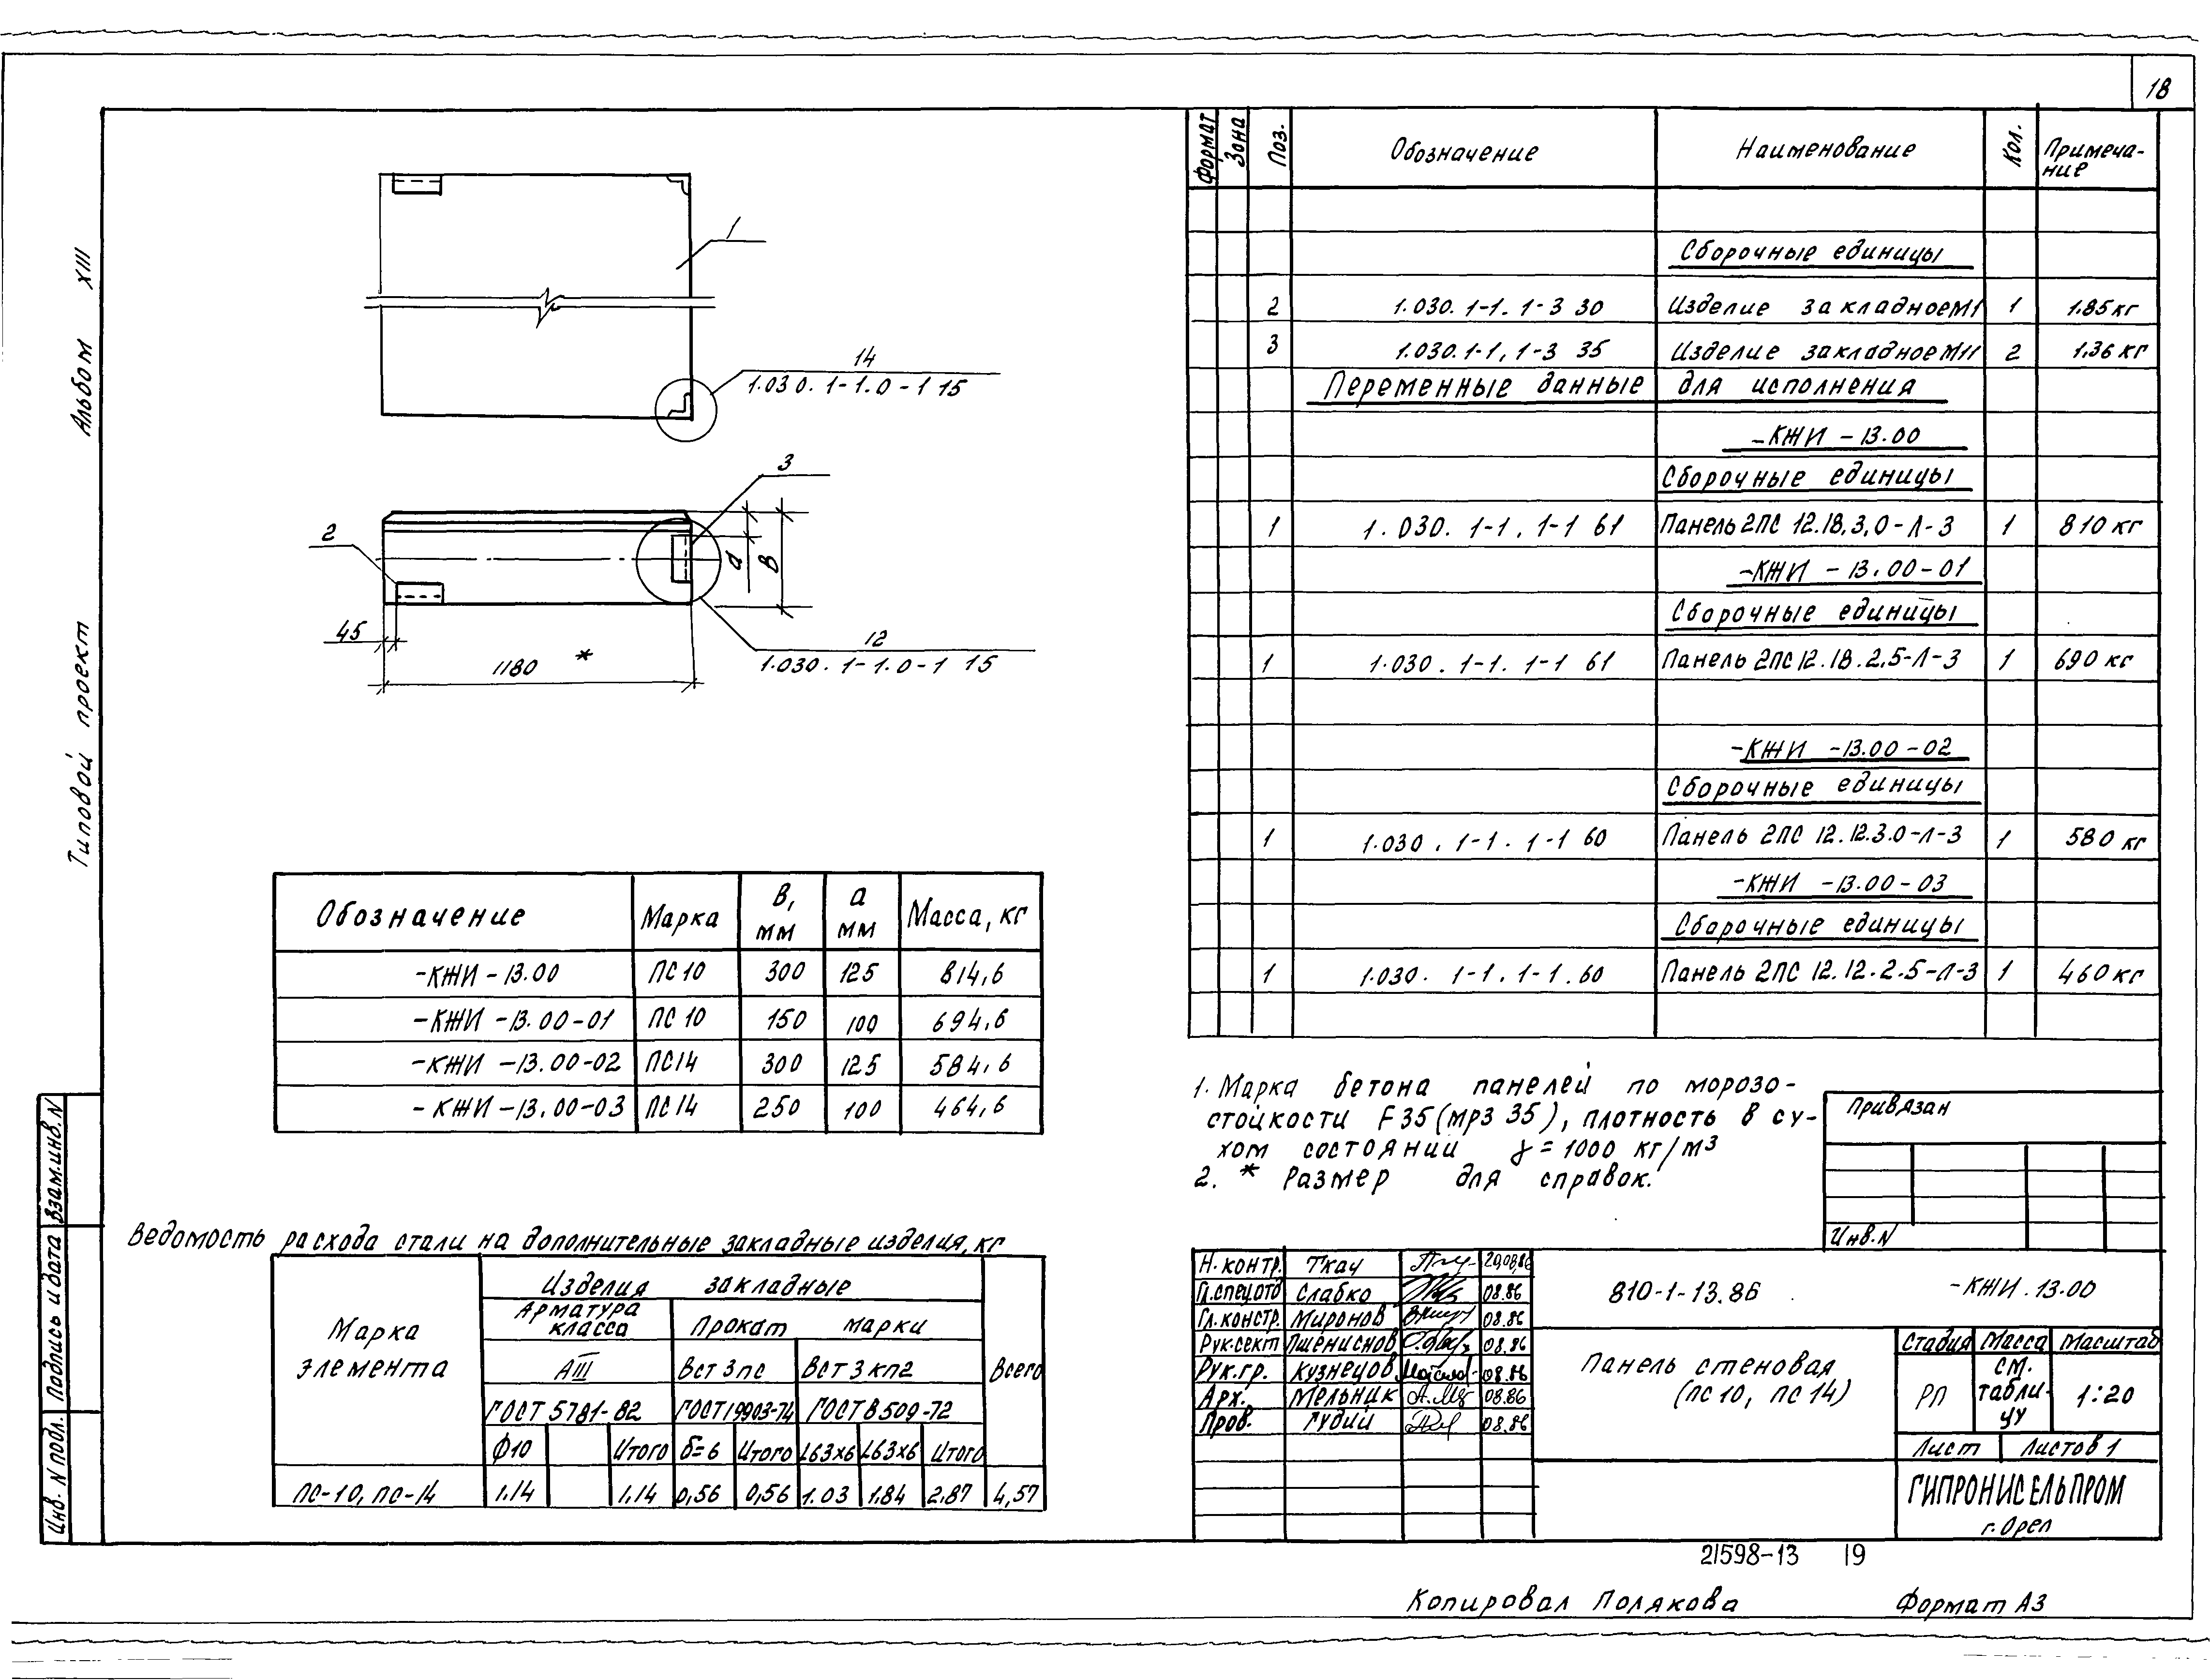 18
Альбом XIII
Типовой проект
Взам.инв.N
Подпись и дата
Инв. N подл.
1
14
1.030. 1-1.0-1 15
3
2
а
В
45
1180 *
12
1.030. 1-1.0-1 15
Обозначение Марка В, мм а мм Масса, кг
-КЖИ-13.00 ПС10 300 125 814,6
-КЖИ-13.00-01 ПС10 150 100 694,6
-КЖИ-13.00-02 ПС14 300 125 584,6
-КЖИ-13.00-03 ПС14 250 100 464,6
Ведомость расхода стали на дополнительные закладные изделия, кг
Марка элемента
Изделия закладные
Всего
Арматура класса
Прокат марки
АIII Вст 3пс Вст 3 кп2
ГОСТ 5781-82 ГОСТ19903-74 ГОСТ8509-72
Ф10 Итого δ=6 Итого L63х6 L63х6 Итого
ПС-10, ПС-14 1,14 1,14 0,56 0,56 1.03 1,84 2,87 4,57
Формат Зона Поз. Обозначение Наименование Кол. Примеча-
ние
Сборочные единицы
2 1.030. 1-1. 1-3 30 Изделие закладноеМ1 1 1.85кг
3 1.030.1-1, 1-3 35 Изделие закладноеМ11 2 1.36 кг
Переменные данные для исполнения
-КЖИ -13.00
Сборочные единицы
1 1. 030. 1-1. 1-1 61 Панель2ПС 12.18.3,0-Л-3 1 810 кг
-КЖИ -13.00-01
Сборочные единицы
1 1.030. 1-1. 1-1 61 Панель 2ПС12.18.2,5-Л-3 1 690 кг
-КЖИ -13.00-02
Сборочные единицы
1 1.030. 1-1. 1-1 60 Панель 2ПС 12.12.3.0-Л-3 1 580 кг
-КЖИ -13.00-03
Сборочные единицы
1 1.030. 1-1. 1-1. 60 Панель 2ПС 12.12.2.5-Л-3 1 460кг
1. Марка бетона панелей по морозо-
стойкости F35(мрз 35), плотность в су-
хом состоянии γ=1000 кг/м3
2. * Размер для справок.
Привязан
Инв.N
Н.контр. Ткач 29.08.86
Гл.спецотд Слабко 08.86
Гл.констр. Миронов 08.86
Рук.сект Пшениснов 08.86
Рук.гр. Кузнецов 08.86
Арх. Мельник 08.86
Пров. Гудий 08.86
810-1-13.86 -КЖИ.13.00
Панель стеновая
(ПС10, ПС14)
Стадия Масса Масштаб
РП см. табли-
цу 1:20
Лист Листов 1
ГИПРОНИСЕЛЬПРОМ
г.Орел
21598-13 19
Копировал Полякова Формат А3